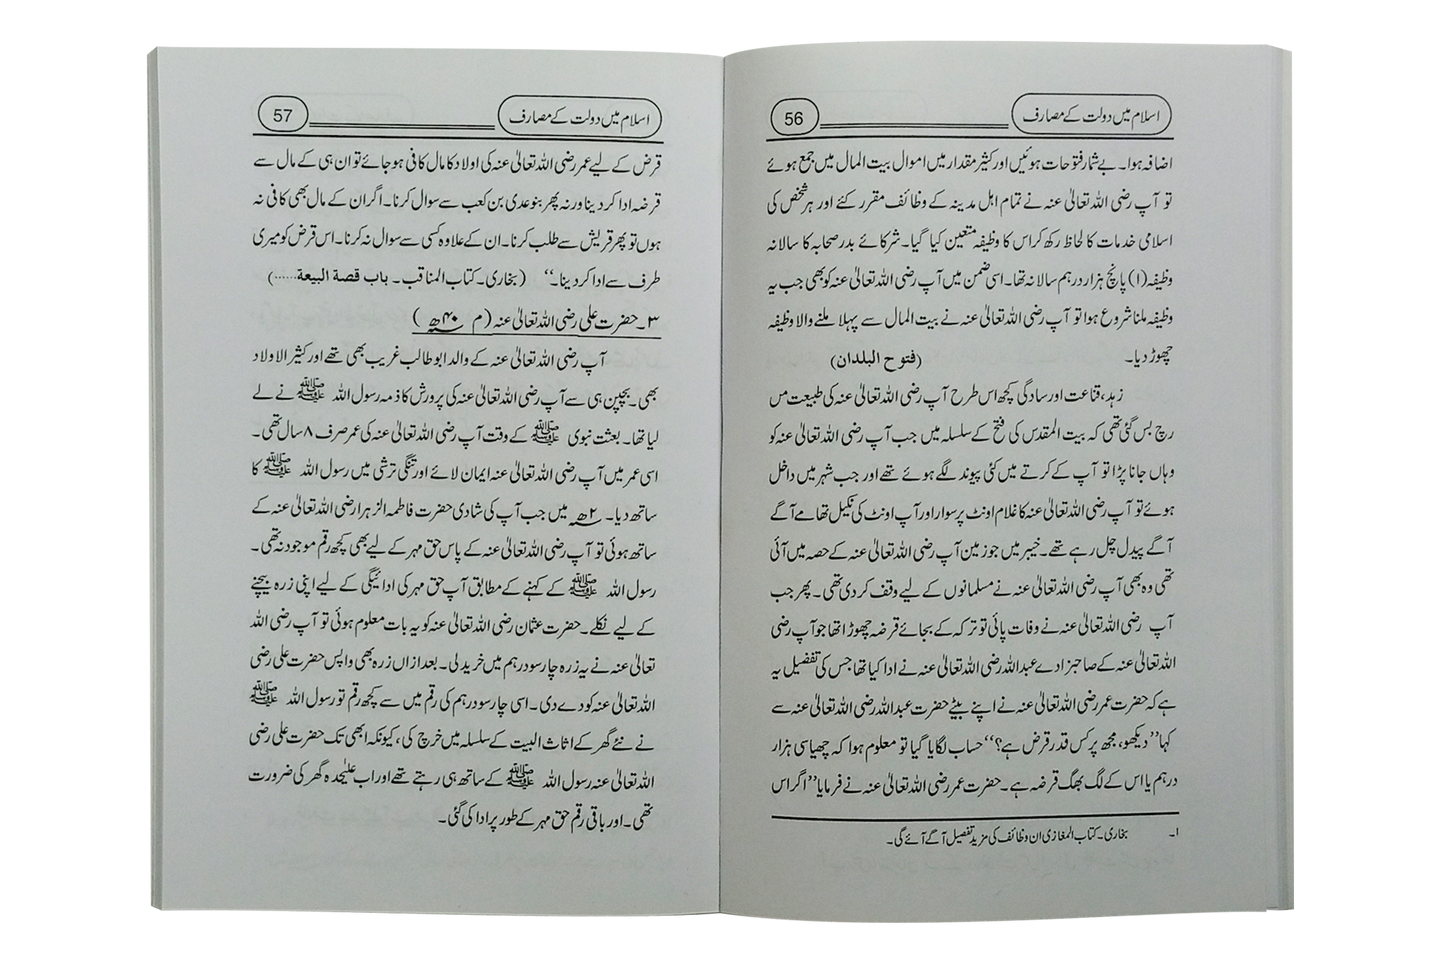 اسلام میں دولت کے مصارف
56
اضافہ ہوا۔ بے شمار فتوحات ہوئیں اور کثیر مقدار میں اموال بیت المال میں جمع ہوئے
تو آپ رضی اللہ تعالیٰ عنہ نے تمام اہل مدینہ کے وظائف مقرر کئے اور ہر شخص کی
اسلامی خدمات کا لحاظ رکھ کر اس کا وظیفہ متعین کیا گیا۔ شرکائے بدر صحابہ کا سالانہ
وظیفہ (۱) پانچ ہزار درہم سالانہ تھا۔ اسی ضمن میں آپ رضی اللہ تعالیٰ عنہ کو بھی جب یہ
وظیفہ ملنا شروع ہوا تو آپ رضی اللہ تعالیٰ عنہ نے بیت المال سے پہلا ملنے والا وظیفہ
چھوڑ دیا۔ (فتوح البلدان)
زہد، قناعت اور سادگی کچھ اس طرح آپ رضی اللہ تعالیٰ عنہ کی طبیعت مں
رچ بس گئی تھی کہ بیت المقدس کی فتح کے سلسلہ میں جب آپ رضی اللہ تعالیٰ عنہ کو
وہاں جانا پڑا تو آپ کے کرتے میں کئی پیوند لگے ہوئے تھے اور جب شہر میں داخل
ہوئے تو آپ رضی اللہ تعالیٰ عنہ کا غلام اونٹ پر سوار اور آپ اونٹ کی نکیل تھامے آگے
آگے پیدل چل رہے تھے۔ خیبر میں جو زمین آپ رضی اللہ تعالیٰ عنہ کے حصہ میں آئی
تھی وہ بھی آپ رضی اللہ تعالیٰ عنہ نے مسلمانوں کے لیے وقف کر دی تھی۔ پھر جب
آپ رضی اللہ تعالیٰ عنہ نے وفات پائی تو ترکہ کے بجائے قرضہ چھوڑا تھا جو آپ رضی
اللہ تعالیٰ عنہ کے صاحبزادے عبداللہ رضی اللہ تعالیٰ عنہ نے ادا کیا تھا جس کی تفصیل یہ
ہے کہ حضرت عمر رضی اللہ تعالیٰ عنہ نے اپنے بیٹے حضرت عبداللہ رضی اللہ تعالیٰ عنہ سے
کہا ”دیکھو، مجھ پر کس قدر قرض ہے؟“ حساب لگایا گیا تو معلوم ہوا کہ چھیاسی ہزار
درہم یا اس کے لگ بھگ قرضہ ہے۔ حضرت عمر رضی اللہ تعالیٰ عنہ نے فرمایا ”اگر اس
۱۔ بخاری۔ کتاب المغازی ان وظائف کی مزید تفصیل آگے آئے گی۔
اسلام میں دولت کے مصارف
57
قرض کے لیے عمر رضی اللہ تعالیٰ عنہ کی اولاد کا مال کافی ہو جائے تو ان ہی کے مال سے
قرضہ ادا کر دینا ورنہ پھر بنو عدی بن کعب سے سوال کرنا۔ اگر ان کے مال بھی کافی نہ
ہوں تو پھر قریش سے طلب کرنا۔ ان کے علاوہ کسی سے سوال نہ کرنا۔ اس قرض کو میری
طرف سے ادا کر دینا۔“ (بخاری۔ کتاب المناقب۔ باب قصة البيعة......)
۳۔ حضرت علی رضی اللہ تعالیٰ عنہ (م ۴۰ھ)
آپ رضی اللہ تعالیٰ عنہ کے والد ابو طالب غریب بھی تھے اور کثیر الاولاد
بھی۔ بچپن ہی سے آپ رضی اللہ تعالیٰ عنہ کی پرورش کا ذمہ رسول اللہ ﷺ نے لے
لیا تھا۔ بعثت نبوی ﷺ کے وقت آپ رضی اللہ تعالیٰ عنہ کی عمر صرف ۸ سال تھی۔
اسی عمر میں آپ رضی اللہ تعالیٰ عنہ ایمان لائے اور تنگی ترشی میں رسول اللہ ﷺ کا
ساتھ دیا۔ ۲ھ میں جب آپ کی شادی حضرت فاطمہ الزہرا رضی اللہ تعالیٰ عنہ کے
ساتھ ہوئی تو آپ رضی اللہ تعالیٰ عنہ کے پاس حق مہر کے لیے بھی کچھ رقم موجود نہ تھی۔
رسول اللہ ﷺ کے کہنے کے مطابق آپ حق مہر کی ادائیگی کے لیے اپنی زرہ بیچنے
کے لیے نکلے۔ حضرت عثمان رضی اللہ تعالیٰ عنہ کو یہ بات معلوم ہوئی تو آپ رضی اللہ
تعالیٰ عنہ نے یہ زرہ چار سو درہم میں خرید لی۔ بعد ازاں زرہ بھی واپس حضرت علی رضی
اللہ تعالیٰ عنہ کو دے دی۔ اسی چار سو درہم کی رقم میں سے کچھ رقم تو رسول اللہ ﷺ
نے نئے گھر کے اثاث البیت کے سلسلہ میں خرچ کی، کیونکہ ابھی تک حضرت علی رضی
اللہ تعالیٰ عنہ رسول اللہ ﷺ کے ساتھ ہی رہتے تھے اور اب علیحدہ گھر کی ضرورت
تھی۔ اور باقی رقم حق مہر کے طور پر ادا کی گئی۔